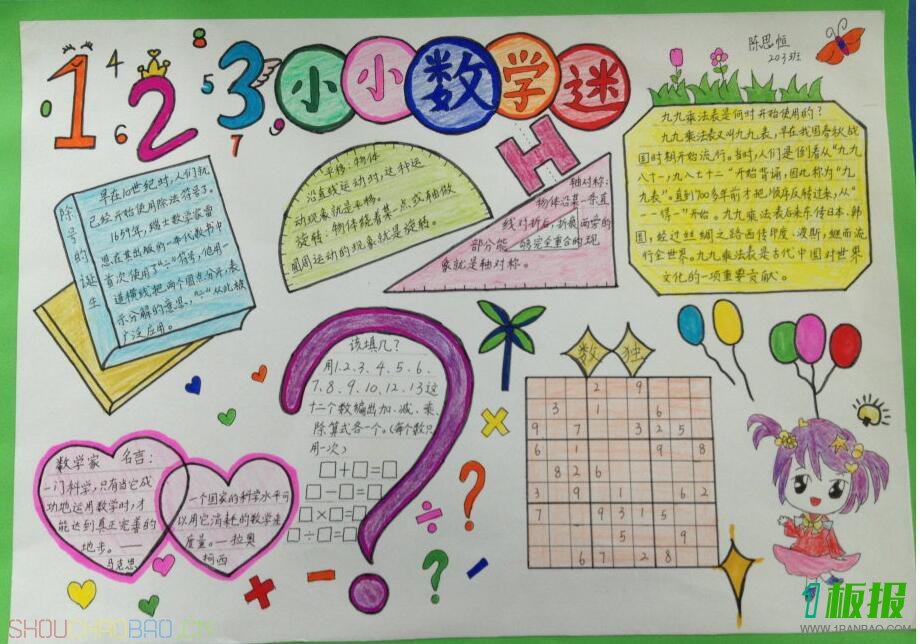 1 2 3 小小数学迷
4
8
5
6
0
7
9
陈思恒
203班
九九乘法表是何时开始使用的?
九九乘法表又叫九九表,早在我国春秋战
国时期开始流行。当时,人们是倒着从“九九
八十一,九八七十二”开始背诵,因此称为“九
九表”。直到700多年前才把顺序反转过来,从“
一一得一”开始。九九乘法表后来东传日本、韩
国,经过丝绸之路西传印度、波斯,继而流
行全世界。九九乘法表是古代中国对世界
文化的一项重要贡献。
除号的诞生
早在10世纪时,人们就
已经开始使用除法符号了。
1659年,瑞士数学家雷
恩在其出版的一本代数书中
首次使用了“÷”符号,他用一
道横线把两个圆点分开,表
示分解的意思,“÷”从此被
广泛应用。
平移:物体
沿直线运动时,这种运
动现象就是平移。
旋转:物体绕着某一点或轴做
圆周运动的现象就是旋转。
轴对称:
物体沿某一条直
线对折后,折痕两旁的
部分能够完全重合的现
象就是轴对称。
该填几?
用1、2、3、4、5、6、
7、8、9、10、12、13这
十二个数编出加、减、乘、
除算式各一个。(每个数只
用一次)
□+□=□
□-□=□
□×□=□
□÷□=□
数独
2 9
3 1 6
9 7 3 2 5
6 1 9 8
8 2 6
3 9 1 6 2
7 9 3 1 5
5 9
6 7 2 8
数学家名言:
一门科学,只有当它成
功地运用数学时,才
能达到真正完善的
地步。——
马克思
一个国家的科学水平可
以用它消耗的数学来
度量。—拉奥
柯西
SHOUCHAOBAO.CN
1板报
WWW.1BANBAO.COM